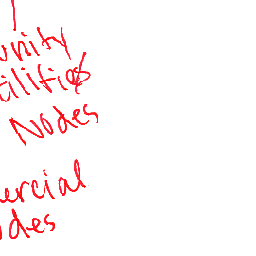 unity
tilities
Nodes
ercial
odes